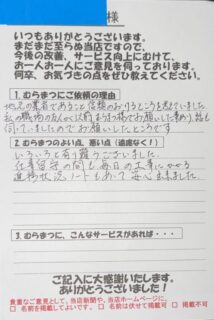 様
いつもありがとうございます。
まだまだ至らぬ当店ですので、
今後の改善、サービス向上にむけて、
お一人お一人にご意見を伺っております。
何卒、お気づきの点をぜひ教えてください。
1. むらまつにご依頼の理由
地元の業者であること信頼のおけるところを思っていました
私の職場の友人が以前むらまつ様でお願いした事があり、話も
伺っていましたのでお願いしたところです
2. むらまつのよい点、悪い点（遠慮なく！）
いろいろと有り難うございました
仕事留守の間も毎日の工事にかかる
進捗状況ノートもあって安心出来ました。
3. むらまつに、こんなサービスがあれば・・・
ご記入に大感謝いたします。
ありがとうございました！
貴重なご意見として、当店新聞や、当店ホームページに、
□ 名前を掲載してよいです。 □ 名前なしで掲載可 □ 掲載不可